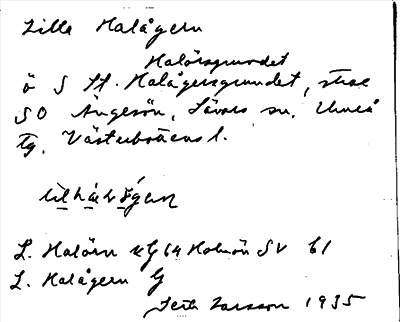 Lilla Halågern
Halörsgrundet
ö S St. Halågersgrundet, strax
SO Ängesön, Sävars sn, Umeå
tg. Västerbottens l.
L. Halörn xG 64 Holmön SV b1
L. Halågern G
Seth Larsson 1935